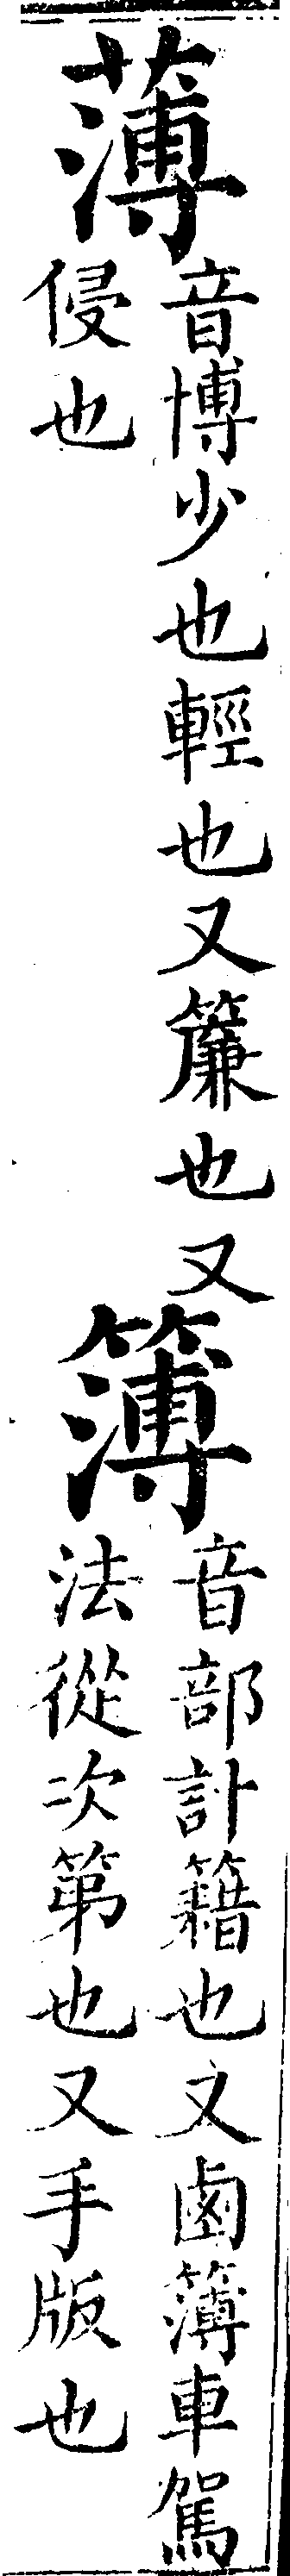 薄
音博少也輕也又簾也又
侵也
簿
音部計籍也又鹵簿車駕
法從次第也又手版也